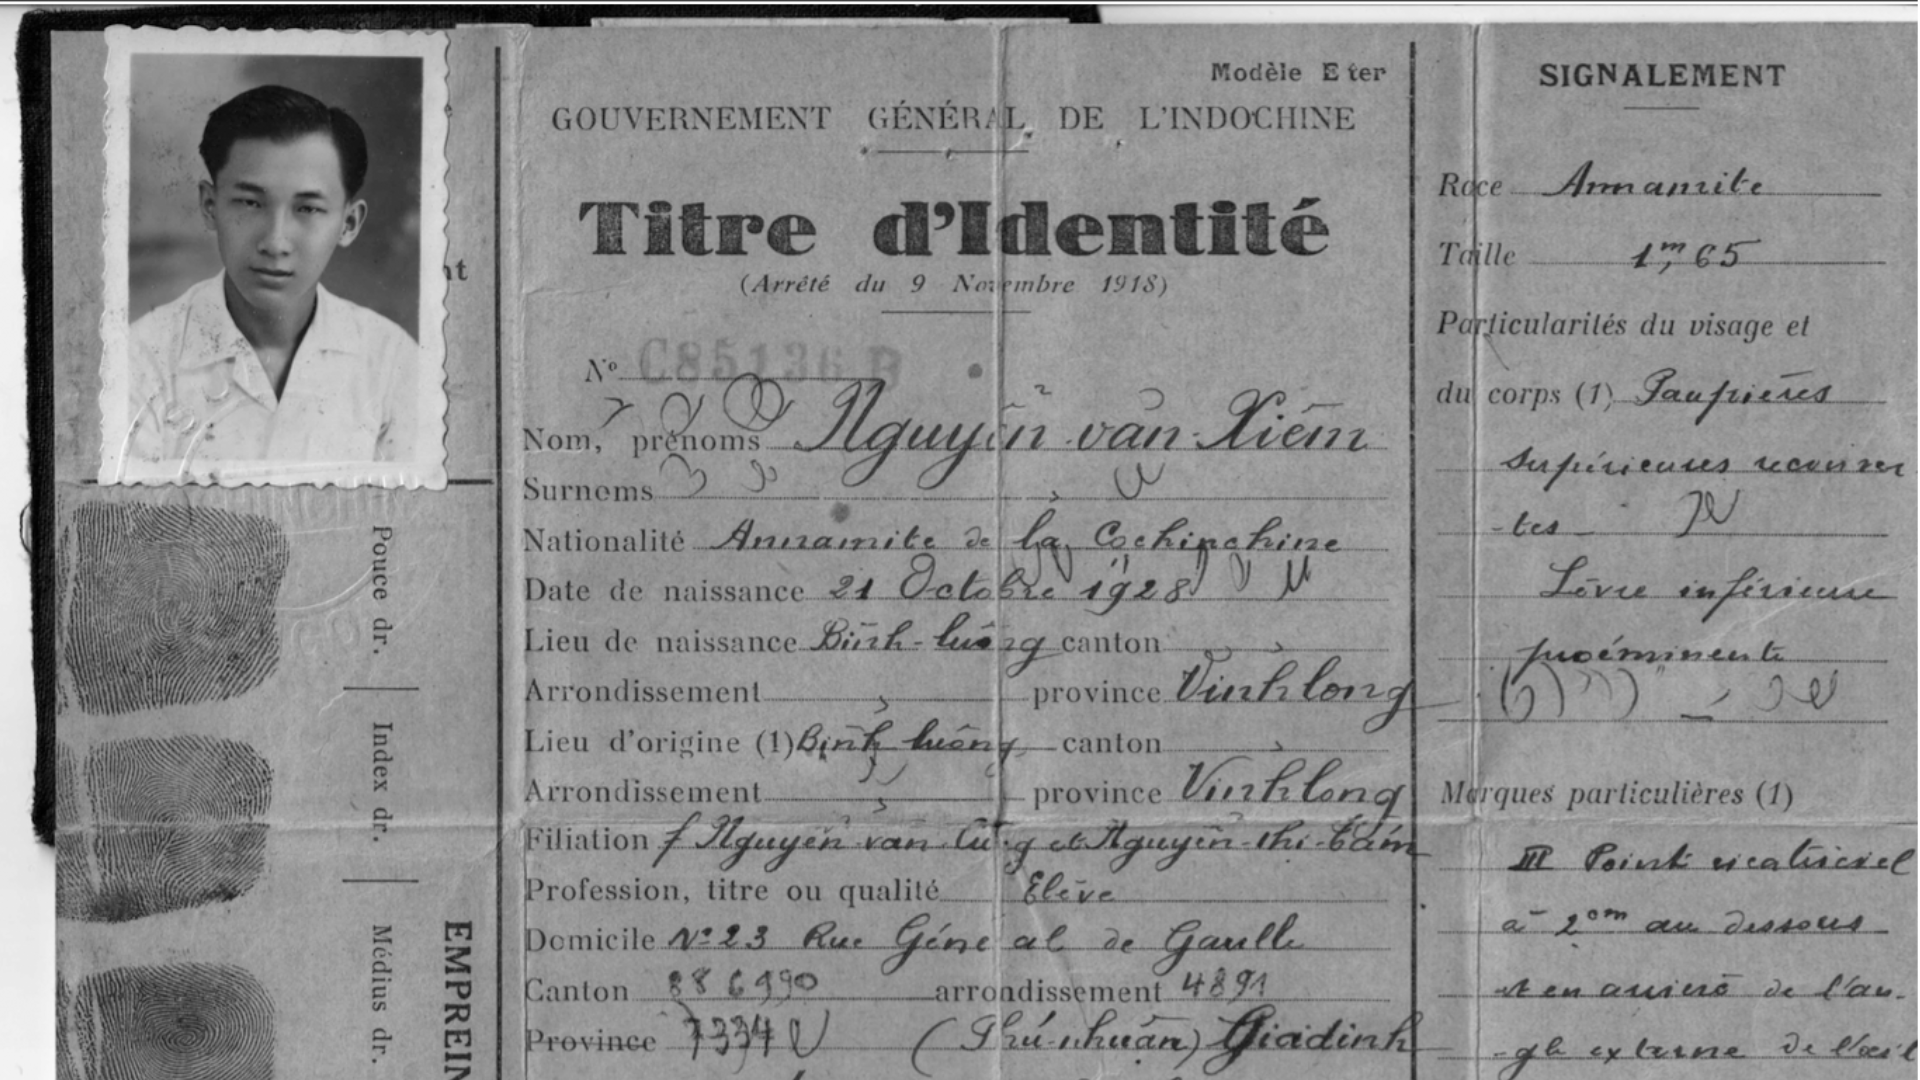 Modèle E ter
GOUVERNEMENT GÉNÉRAL DE L'INDOCHINE
Titre d'Identité
(Arrêté du 9 Novembre 1918)
N° C85136 B
Nom, prénoms Nguyễn văn Xiêm
Surnoms
Nationalité Annamite de la Cochinchine
Date de naissance 21 Octobre 1928
Lieu de naissance Bình-luông canton
Arrondissement province Vinhlong
Lieu d'origine (1) Bình luông canton
Arrondissement province Vinhlong
Filiation f Nguyễn văn et Nguyễn-thi-Cám
Profession, titre ou qualité Elève
Domicile N° 23 Rue Général de Gaulle
Canton 886990 arrondissement 4891
Province 7334 (Phú-nhuân) Giadinh
SIGNALEMENT
Race Annamite
Taille 1m,65
Particularités du visage et
du corps (1) Paupières
supérieures recouver
-tes
Lèvre inférieure
proéminente
Marques particulières (1)
III Point cicatriciel
à 2cm au dessous
et en arrière de l'an-
-gle externe de l'œil
nt
Pouce dr.
Index dr.
Médius dr.
EMPREIN